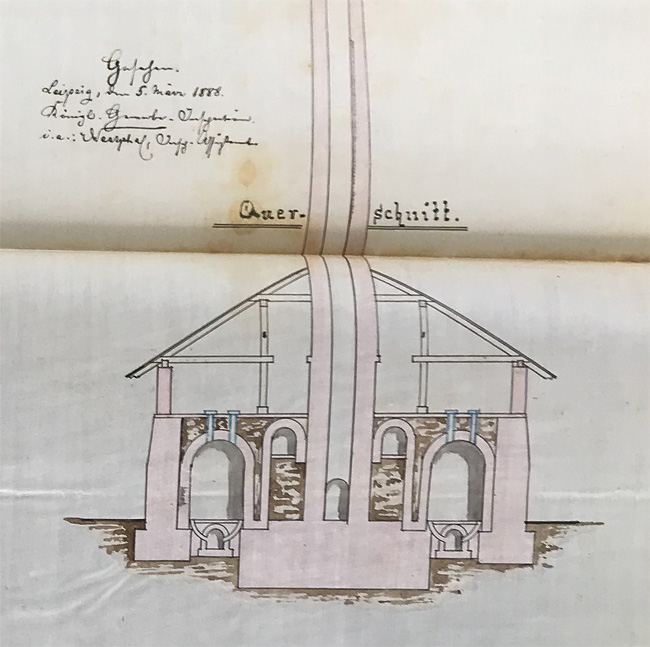 Gesehen.
Leipzig, den 5. März 1888.
Königl. Gewerbe-Inspection.
i.a.: Westphal, Insp. Assistent
Quer-schnitt.